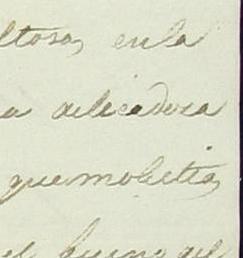 ltosa, en la
a delicadeza
que molestia,
el bueno que